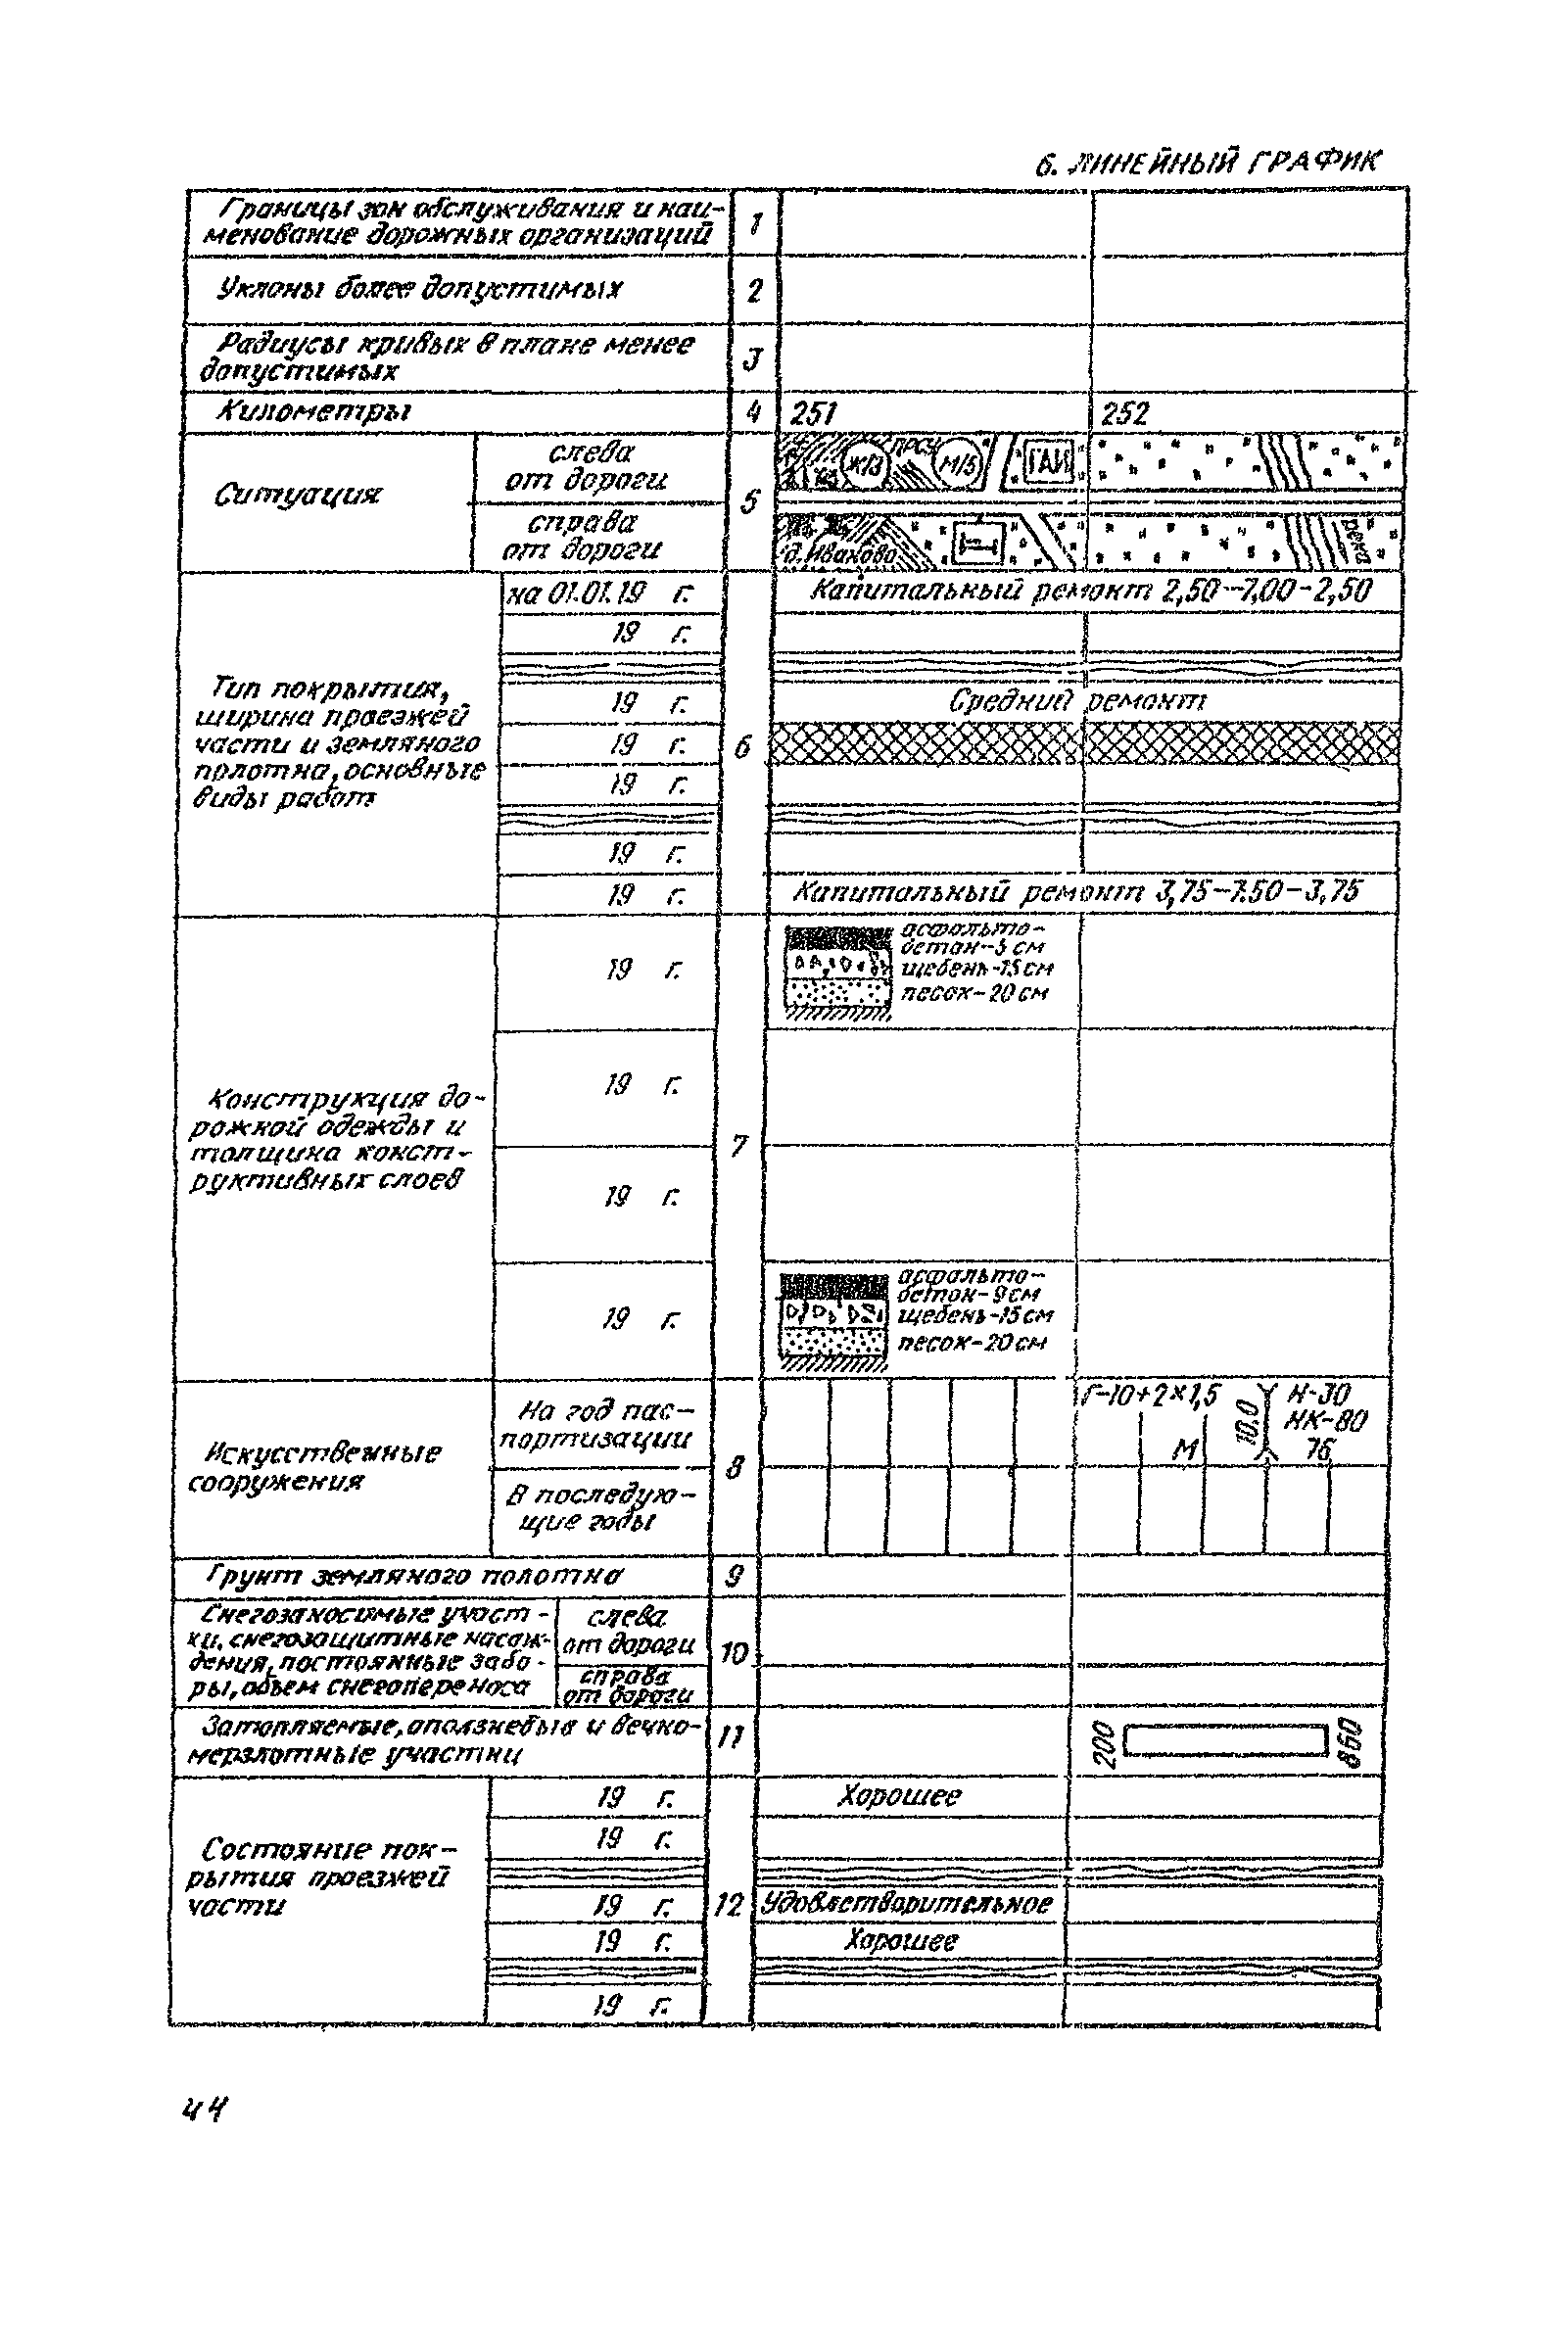 6. ЛИНЕЙНЫЙ ГРАФИК
Границы зон обслуживания и наи-
менование дорожных организаций
1
Уклоны более допустимых
2
Радиусы кривых в плане менее
допустимых
3
Километры
4
251
252
Ситуация
слева
от дороги
5
Ж/З
ПРСУ
М/5
ГАИ
справа
от дороги
д. Иваково
река
Тип покрытия,
ширина проезжей
части и земляного
полотна, основные
виды работ
6
на 01.01.19 г.
Капитальный ремонт 2,50-7,00-2,50
19 г.
19 г.
Средний ремонт
19 г.
19 г.
19 г.
19 г.
Капитальный ремонт 3,75-7.50-3,75
Конструкция до-
рожной одежды и
толщина конст-
руктивных слоев
7
19 г.
асфальто-
бетон-5 см
щебень-15 см
песок-20 см
19 г.
19 г.
19 г.
асфальто-
бетон-9 см
щебень-15 см
песок-20 см
Искусственные
сооружения
8
На год пас-
портизации
Г-10+2×1,5
М
10,0
Н-30
НК-80
76
В последую-
щие годы
Грунт земляного полотна
9
Снегозаносимые участ-
ки, снегозащитные насаж-
дения, постоянные забо-
ры, объем снегопереноса
слева
от дороги
10
справа
от дороги
Затопляемые, оползневые и вечно-
мерзлотные участки
11
200
860
Состояние пок-
рытия проезжей
части
12
19 г.
Хорошее
19 г.
19 г.
Удовлетворительное
19 г.
Хорошее
19 г.
44